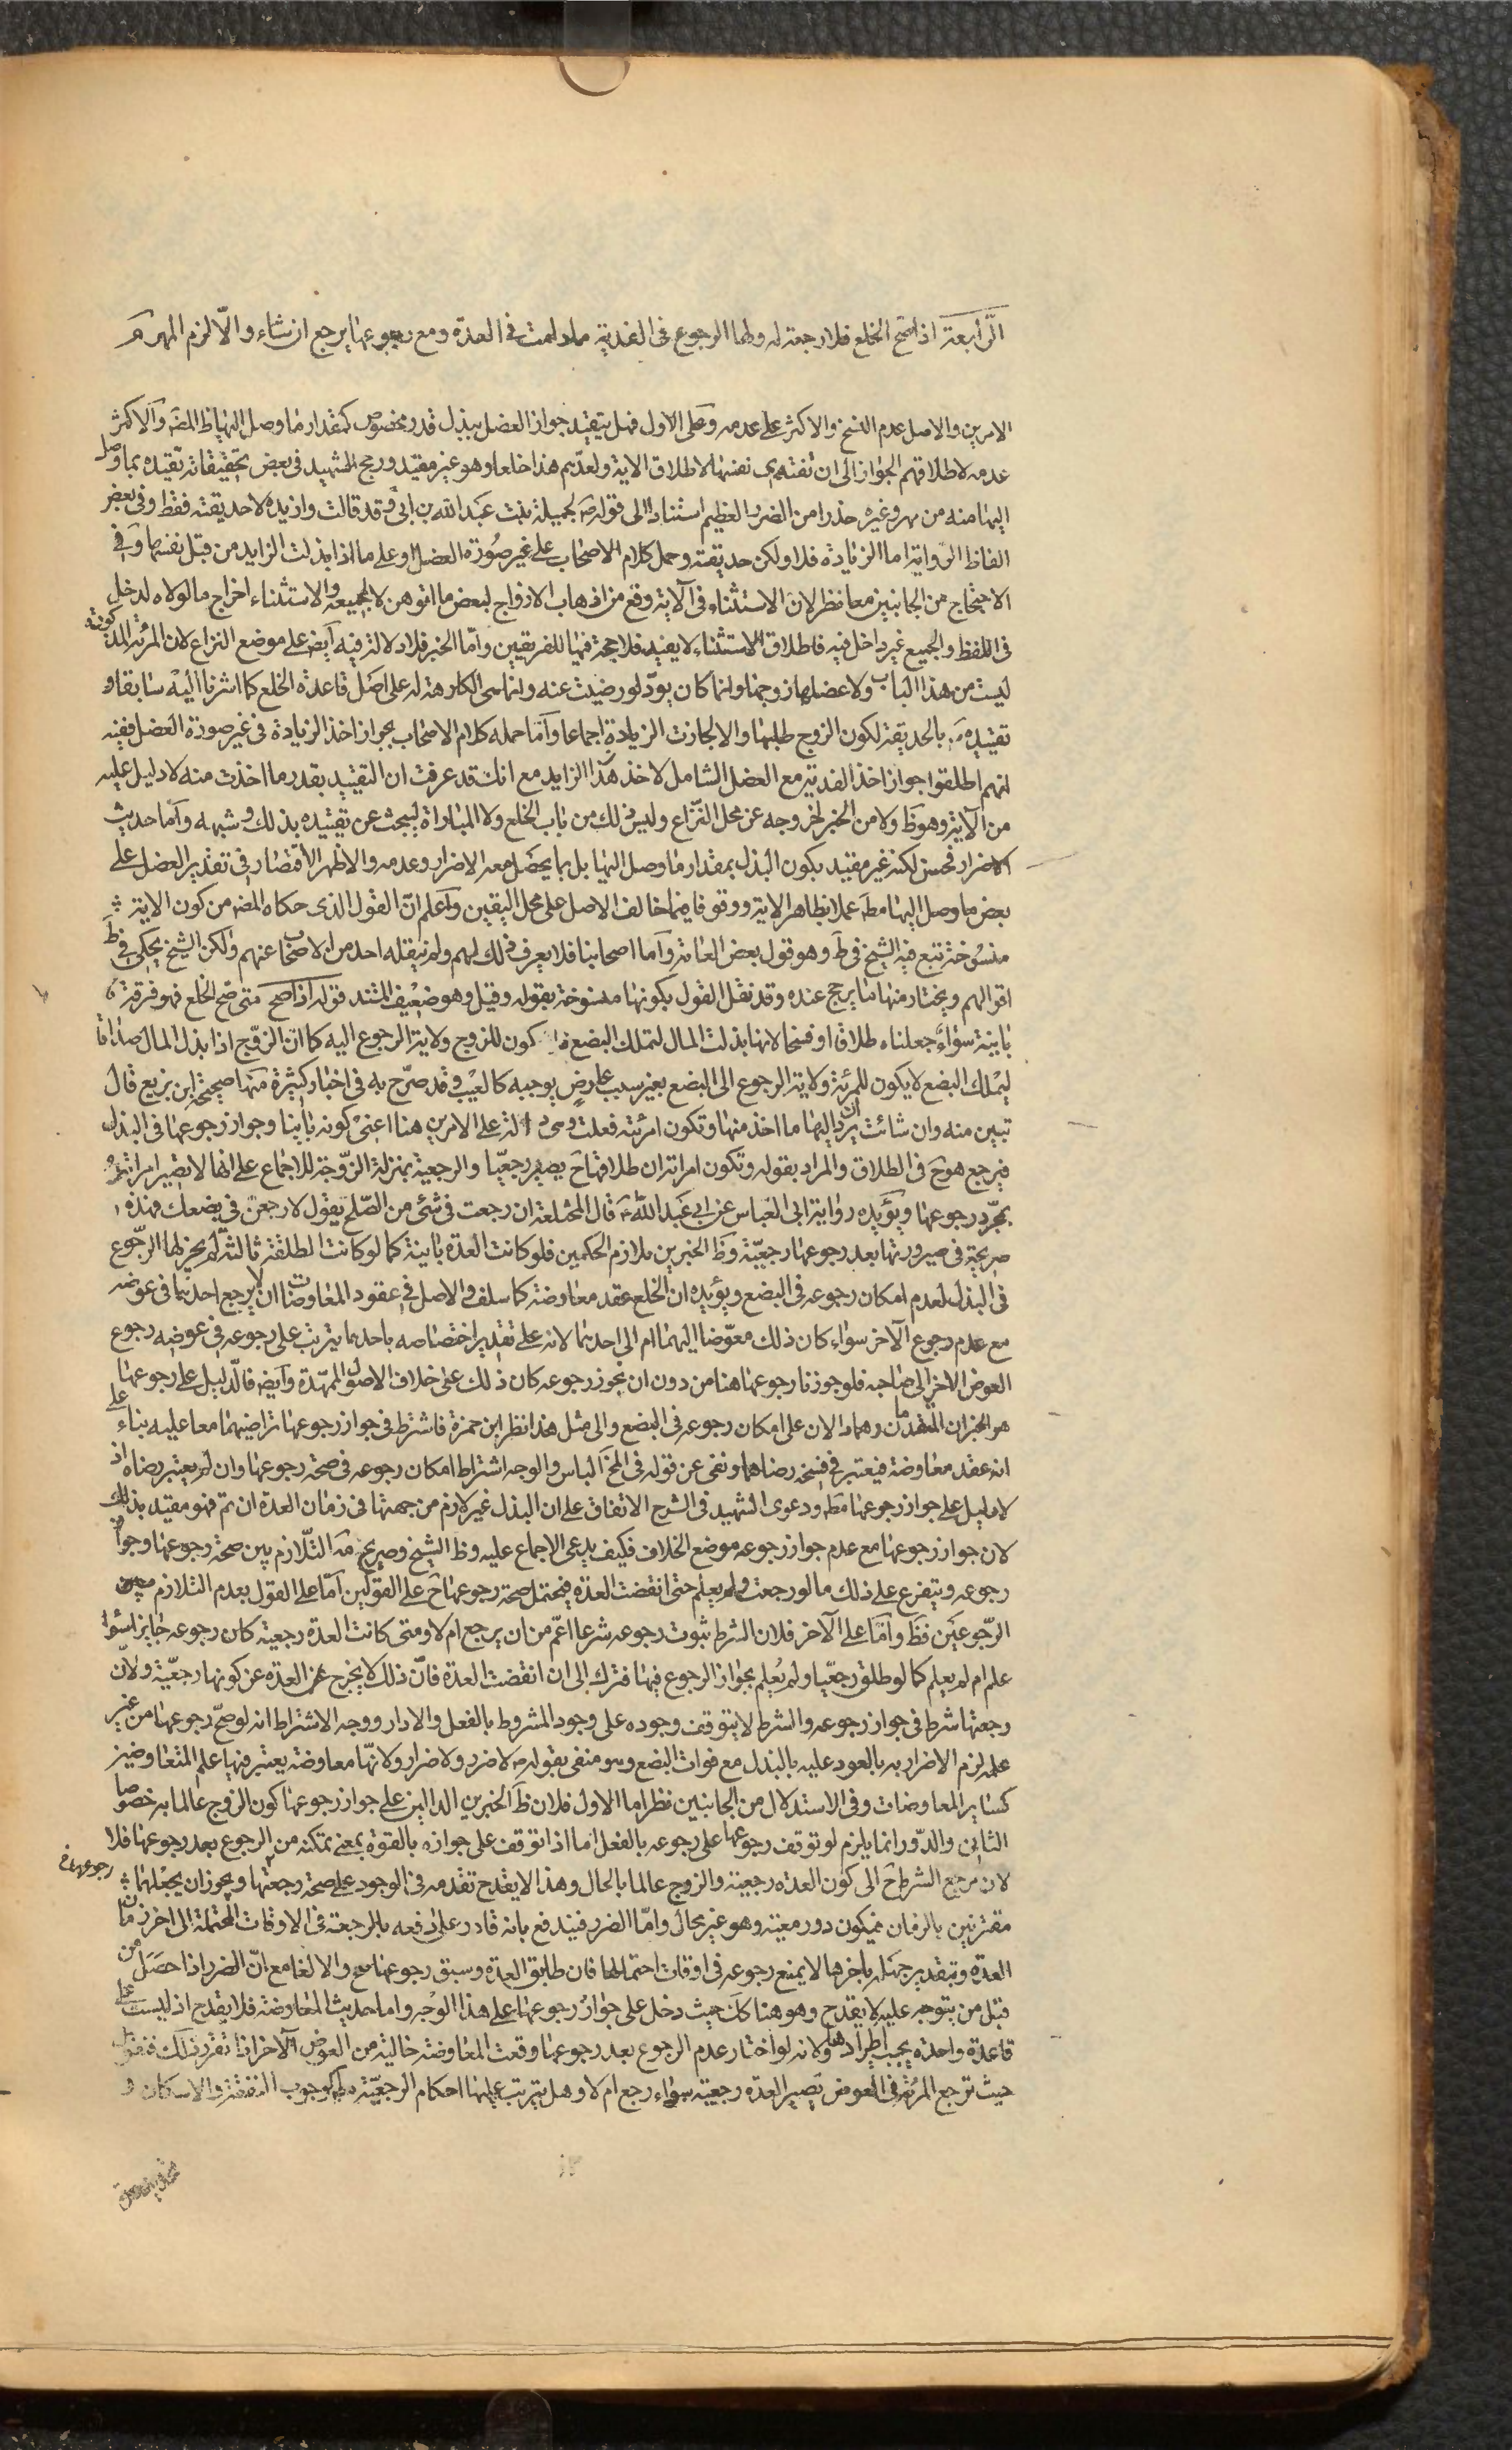 الرابعة اذا صح الخلع فلا رجعة له ولها الرجوع فى الفدية ما دامت فى العدة ومع رجوعها يرجع ان شاء والّا لزم المهر
الامرين والاصل عدم النسخ والاكثر على عدمه وعلى الاول فهل يتقيد جواز العضل ببذل قدر مخصوص كمقدار ما وصل اليها ظ المصَ والاكثر
عدمه لاطلاقهم الجواز الى ان تفتدى نفسها لاطلاق الاية ولعدّهم هذا خلعا وهو غير مقيد ورجح الشهيد فى بعض تحقيقاته تقيده بما وصل
اليها منه من مهر وغيره حذرا من الضرر العظيم استنادا الى قوله صَ لجميلة بنت عبد الله بن ابىّ وقد قالت وازيده لا حديقته فقط وفى بعض
الفاظ الرواية اما الزيادة فلا ولكن حديقته وحمل كلام الاصحاب على غير صورة العضل او على ما اذا بذلت الزايد من قبل نفسها وفى
الاحتجاج من الجانبين معا نظر لان الاستثناء فى الآية وقع من اذهاب الازواج لبعض ما اتوهن لا لجميعه والاستثناء اخراج ما لولاه لدخل
فى اللفظ والجميع غير داخل فيه فاطلاق الاستثناء لا يفيد فلا حجة فيها للفريقين وامّا الخبر فلا دلالة فيه ايضَ على موضع النزاع لان المرئة المذكورة
ليست من هذا الباب ولا عضلها زوجها وانما كان يودّ لو رضيت عنه وانما هى الكارهة له على اصل قاعدة الخلع كما اشرنا اليه سابقا و
تقييده بالحديقة لكون الزوج طلبها والا لجازت الزيادة اجماعا وامّا حمله كلام الاصحاب بجواز اخذ الزيادة فى غير صورة العضل ففيه
انهم اطلقوا جواز اخذ الفدية مع العضل الشامل لاخذ هذا الزايد مع انك قد عرفت ان التقييد بقدر ما اخذت منه لا دليل عليه
من الآية وهو ظَ ولا من الخبر لخروجه عن محل النزاع وليس ذلك من باب الخلع ولا المباراة ليبحث عن تقييده بذلك وشبهه وامّا حديث
الاضرار فحسن لكنه غير مقيد بكون البذل بمقدار ما وصل اليها بل بما يحصل معه الاضرار وعدمه والاظهر الاقتصار فى تقدير العضل على
بعض ما وصل اليها مطَ عملا بظاهر الاية ووقوفا فيما خالف الاصل على محل اليقين واعلم انّ القول الذى حكاه المصَ من كون الاية
منسوخة تبع فيه الشيخ فى طَ وهو قول بعض العامة وامّا اصحابنا فلا يعرف ذلك لهم ولم ينقله احد من الاصحاب عنهم ولكن الشيخ يحكى فى طَ
اقوالهم ويختار منها ما يرجح عنده وقد نقل القول بكونها منسوخة بقوله وقيل وهو ضعيف المستند قوله اذا صح متى صح الخلع فهو فرقة
باينة سواء جعلناه طلاقا او فسخا لانها بذلت المال لتملك البضع فلا يكون للزوج ولاية الرجوع اليه كما انّ الزوج اذا بذل المال صداقا
ليملك البضع لا يكون للمرئة ولاية الرجوع الى البضع بغير سبب عارض يوجبه كالعيب وقد صرّح به فى اخبار كثيرة منها صحيحة ابن بزيع قال
تبين منه وان شائت ان يردّ اليها ما اخذ منها وتكون امرئته فعلت وهى دالة على الامرين هنا اعنى كونه باينا وجواز رجوعها فى البذل
فيرجع هو حَ فى الطلاق والمراد بقوله وتكون امراته ان طلاقها حَ يصير رجعيّا والرجعية بمنزلة الزوجة للاجماع على انها لا تصير امراته
بمجرّد رجوعها ويؤيده رواية ابى العباس عن ابى عبد اللهَ عَ قال المختلعة ان رجعت فى شئ من الصّلح يقول لارجعن فى بضعك فهذه
صريحة فى صيرورتها بعد رجوعها رجعيّة وظَ الخبرين تلازم الحكمين فلو كانت العدّة باينة كما لو كانت الطلقة ثالثة لم يجز لها الرجوع
فى البذل لعدم امكان رجوعه فى البضع ويؤيده ان الخلع عقد معاوضة كما سلف والاصل فى عقود المعاوضات ان لا يرجع احدهما فى عوضه
مع عدم رجوع الآخر سواء كان ذلك معوّضا اليهما ام الى احدهما لانه على تقدير اختصاصه باحدهما يترتب على رجوعه فى عوضه رجوع
العوض الاخر الى صاحبه فلو جوزنا رجوعها هنا من دون ان يجوز رجوعه كان ذلك على خلاف الاصول الممهّدة وايضَ فالدّليل على رجوعها
هو الخبران المتقدمان وهما دالان على امكان رجوعه فى البضع والى مثل هذا نظر ابن حمزة فاشترط فى جواز رجوعها تراضيهما معا عليه بناء على
انه عقد معاوضة فيعتبر فى فسخه رضاهما ونفى عن قوله فى المخَ الباس والوجه اشتراط امكان رجوعه فى صحة رجوعها وان لم يعتبر رضاه اذ
لا دليل على جواز رجوعها مطَ ودعوى الشهيد فى الشرح الاتفاق على ان البذل غير لازم من جهتها فى زمان العدة ان تم فهو مقيد بذلك
لان جواز رجوعها مع عدم جواز رجوعه موضع الخلاف فكيف يدعى الاجماع عليه وظَ الشيخ وصريح التّلازم بين صحة رجوعها وجواز
رجوعه ويتفرع على ذلك ما لو رجعت ولم يعلم حتى انقضت العدة فيحتمل صحة رجوعها حَ على القولين امّا على القول بعدم التلازم بين
الرّجوعَين فظَ وامّا على الآخر فلان الشرط ثبوت رجوعه شرعا اعمّ من ان يرجع ام لا ومتى كانت العدة رجعية كان رجوعه جايزا سواء
علم ام لم يعلم كما لو طلق رجعيّا ولم يعلم بجواز الرجوع فيها فترك الى ان انقضت العدة فانّ ذلك لا يخرج عن العدة عن كونها رجعيّة ولانّ
رجعتها شرط فى جواز رجوعه والشرط لا يتوقف وجوده على وجود المشروط بالفعل والا دار ووجه الاشتراط انه لو صحّ رجوعها من غير
علمه لزم الاضرار به بالعود عليه بالبذل مع فوات البضع وهو منفى بقوله صَ لا ضرر ولا ضرار ولانّها معاوضة يعتبر فيها علم المتعاوضين
كساير المعاوضات وفى الاستدلال من الجانبين نظر اما الاول فلان ظَ الخبرين الدالين على جواز رجوعها كون الزوج عالما به خصوصا
الثانى والدّور انما يلزم لو توقف رجوعها على رجوعه بالفعل اما اذا توقف على جوازه بالقوة بمعنى تمكنه من الرجوع بعد رجوعها فلا
لان مرجع الشرط حَ الى كون العدة رجعية والزوج عالما بالحال وهذا لا يقدح تقدمه فى الوجود على صحة رجعتها ويجوز ان يجعلها رجوعهما
مقترنين بالزمان فيكون دور معيّة وهو غير محال وامّا الضرر فيندفع بانه قادر على دفعه بالرجعة فى الاوقات المحتملة الى اخر زمان
العدة وبتقدير جهله باخرها لا يمنع رجوعه فى اوقات احتمالها فان طابق العدة وسبق رجوعها صح والا لغا مع انّ الضرر اذا حصل من
قبل من يتوجه عليه لا يقدح وهو هنا كَكَ حيث دخل على جواز رجوعها على هذا الوجه واما حديث المعاوضة فلا يقدح اذ ليست على
قاعدة واحدة يجب اطرادها ولانه لو اختار عدم الرجوع بعد رجوعها وقعت المعاوضة خالية من العوض الآخر اذا تقرر ذلك فنقول
حيث ترجع المرئة فى العوض تصير العدة رجعية سواء رجع ام لا وهل يترتب عليها احكام الرجعيّة مطَ كوجوب النفقة والاسكان و